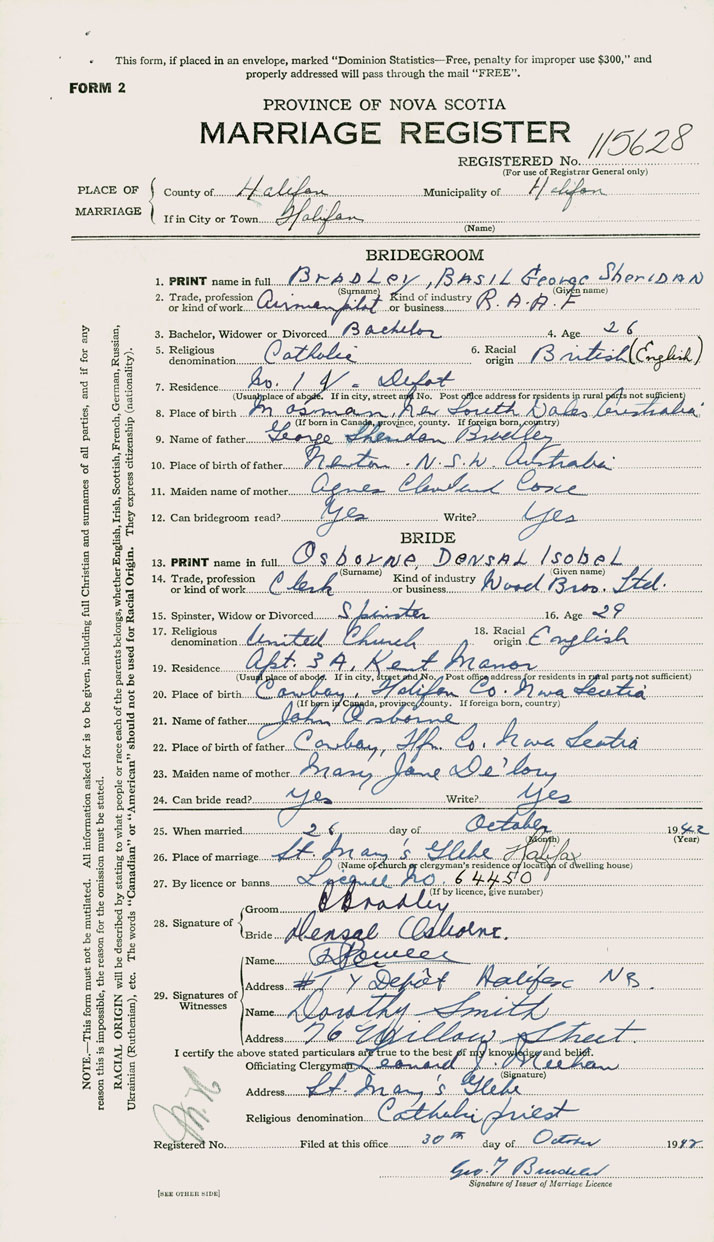 This form, if placed in an envelope, marked "Dominion Statistics—Free, penalty for improper use $300," and
properly addressed will pass through the mail "FREE".
FORM 2
PROVINCE OF NOVA SCOTIA
MARRIAGE REGISTER
REGISTERED No. 115628
(For use of Registrar General only)
PLACE OF MARRIAGE
County of Halifax Municipality of Halifax
If in City or Town Halifax
(Name)
BRIDEGROOM
1. PRINT name in full BRADLEY, BASIL George SherIDAN
(Surname) (Given name)
2. Trade, profession or kind of work Airman pilot Kind of industry or business R.A.A.F
3. Bachelor, Widower or Divorced Bachelor 4. Age 26
5. Religious denomination Catholic 6. Racial origin British (English)
7. Residence No. 1 Y Depot
(Usual place of abode. If in city, street and No. Post office address for residents in rural parts not sufficient)
8. Place of birth Mosman, New South Wales Australia
(If born in Canada, province, county. If foreign born, country)
9. Name of father George Sheridan Bradley
10. Place of birth of father N.S.W. Australia
11. Maiden name of mother Agnes
12. Can bridegroom read? Yes Write? Yes
BRIDE
13. PRINT name in full OSBORNE, DENSAL ISOBEL
(Surname) (Given name)
14. Trade, profession or kind of work Clerk Kind of industry or business Wood Bros. Ltd.
15. Spinster, Widow or Divorced Spinster 16. Age 29
17. Religious denomination United Church 18. Racial origin English
19. Residence Apt. 3A, Kent Manor
(Usual place of abode. If in city, street and No. Post office address for residents in rural parts not sufficient)
20. Place of birth Cowbay, Halifax Co. Nova Scotia
(If born in Canada, province, county. If foreign born, country)
21. Name of father John Osborne
22. Place of birth of father Cowbay, Hfx. Co. Nova Scotia
23. Maiden name of mother Mary Jane De'lory
24. Can bride read? Yes Write? Yes
25. When married 26 day of October 1942
(Month) (Year)
26. Place of marriage St. Mary's Glebe Halifax
(Name of church or clergyman's residence or location of dwelling house)
27. By licence or banns No. 64450
(If by licence, give number)
28. Signature of
Groom B Bradley
Bride Densal Osborne.
29. Signatures of Witnesses
Name
Address #1 Y Depôt Halifax NS.
Name Dorothy Smith
Address 76 Willow Street.
I certify the above stated particulars are true to the best of my knowledge and belief.
Officiating Clergyman Leonard J. Meehan
(Signature)
Address St. Mary's Glebe
Religious denomination Catholic priest
Registered No. Filed at this office 30th day of October 1942
Geo. T
Signature of Issuer of Marriage Licence
[SEE OTHER SIDE]
NOTE.—This form must not be mutilated. All information asked for is to be given, including full Christian and surnames of all parties, and if for any
reason this is impossible, the reason for the omission must be stated.
RACIAL ORIGIN will be described by stating to what people or race each of the parents belongs, whether English, Irish, Scottish, French, German, Russian,
Ukrainian (Ruthenian), etc. The words "Canadian" or "American" should not be used for Racial Origin. They express citizenship (nationality).